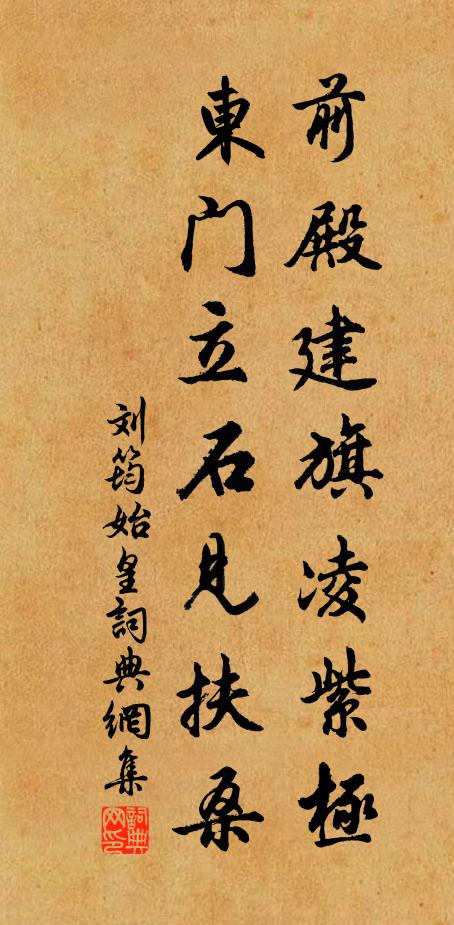 前殿建旗凌紫極
東门立石見扶桑
刘筠始皇詞典網集
詞典网印